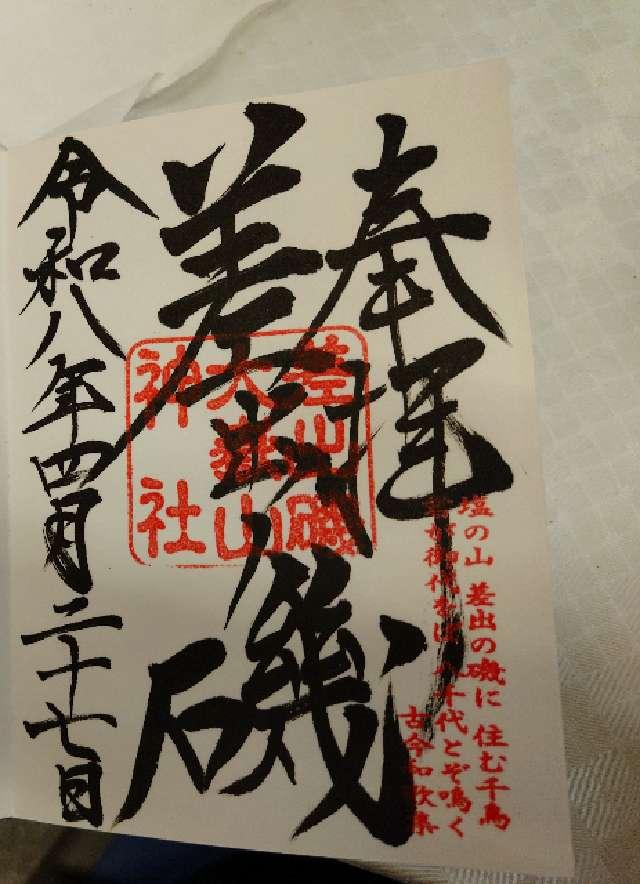 奉拝
塩の山 差出の磯に 住む千鳥
君が御代をば 八千代とぞ鳴く
古今和歌集
差出磯
差出磯
大嶽山
神社
令和八年四月二十七日